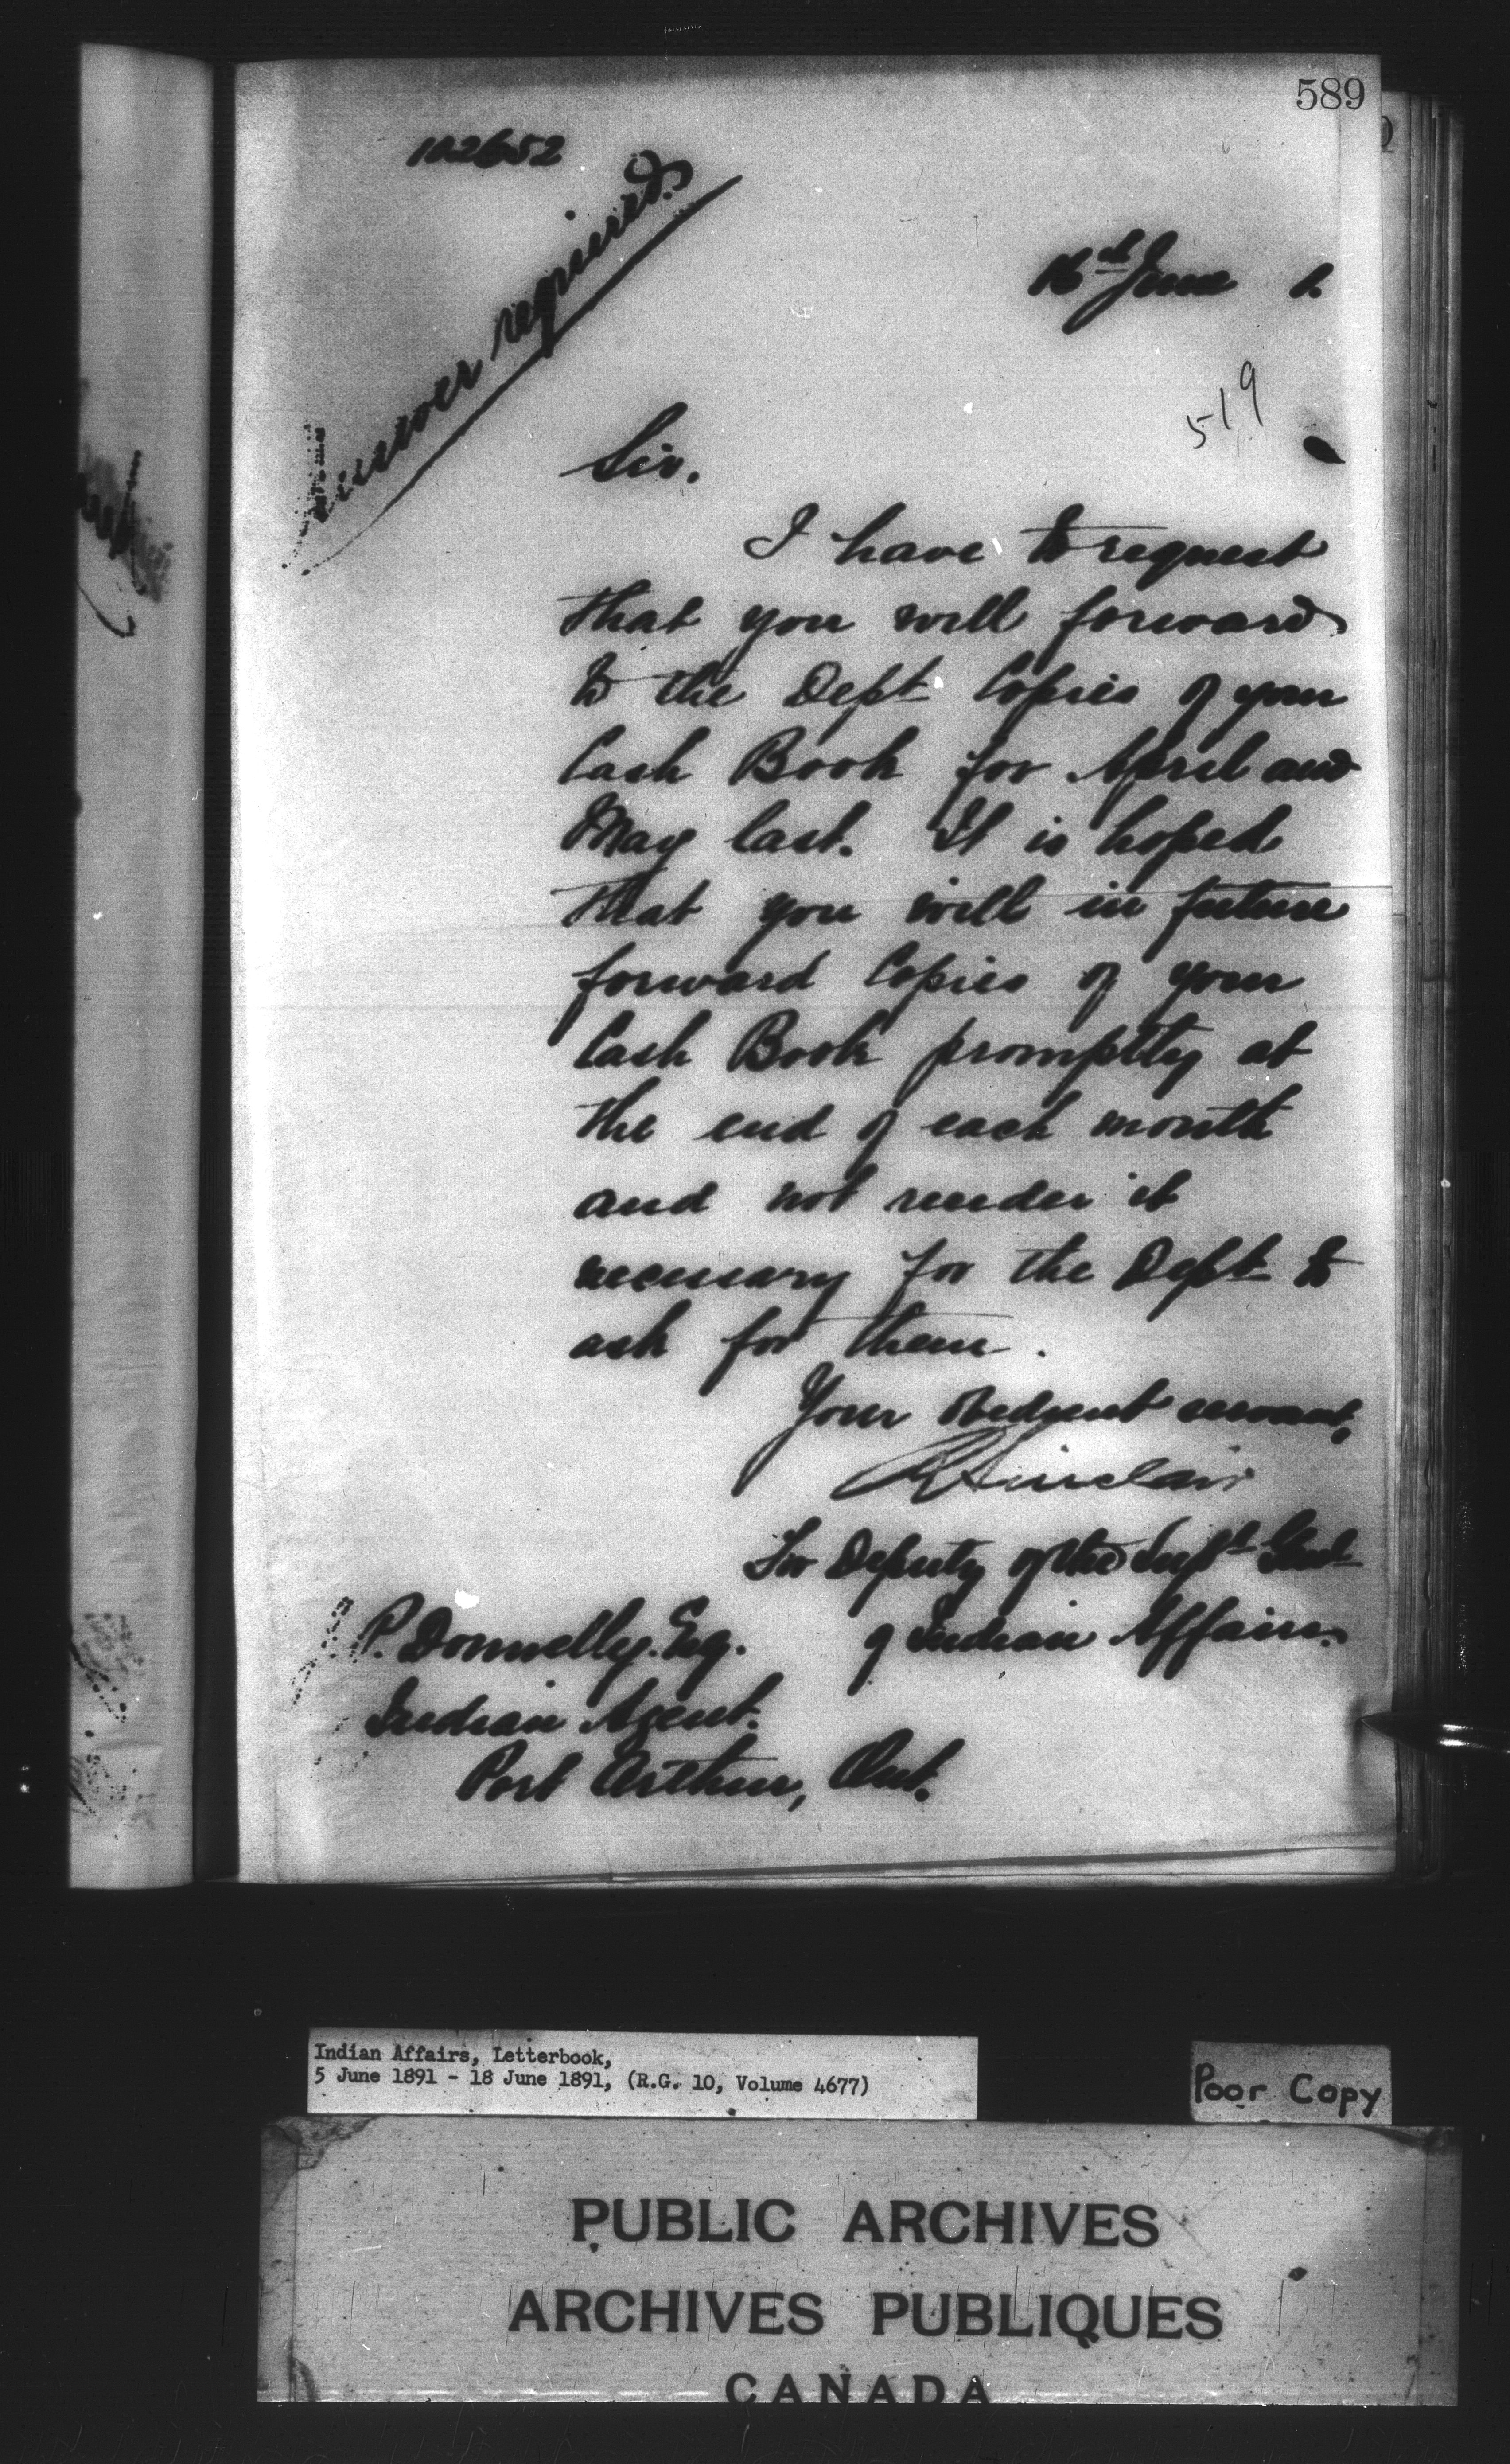 589
102652
Answer required.
16th June 1.
519
Sir.
I have to request
that you will forward
to the Dept. Copies of your
Cash Book for April and
May last. It is hoped
that you will in future
forward Copies of your
Cash Book promptly at
the end of each month
and not render it
necessary for the Dept to
ask for them.
Your obedient servant,
R Sinclair
For Deputy of the Supt Genl
of Indian Affairs.
P. Donnelly. Esq.
Indian Agent.
Port Arthur, Ont.
Indian Affairs, Letterbook,
5 June 1891 - 18 June 1891, (R.G. 10, Volume 4677)
Poor Copy
PUBLIC ARCHIVES
ARCHIVES PUBLIQUES
CANADA